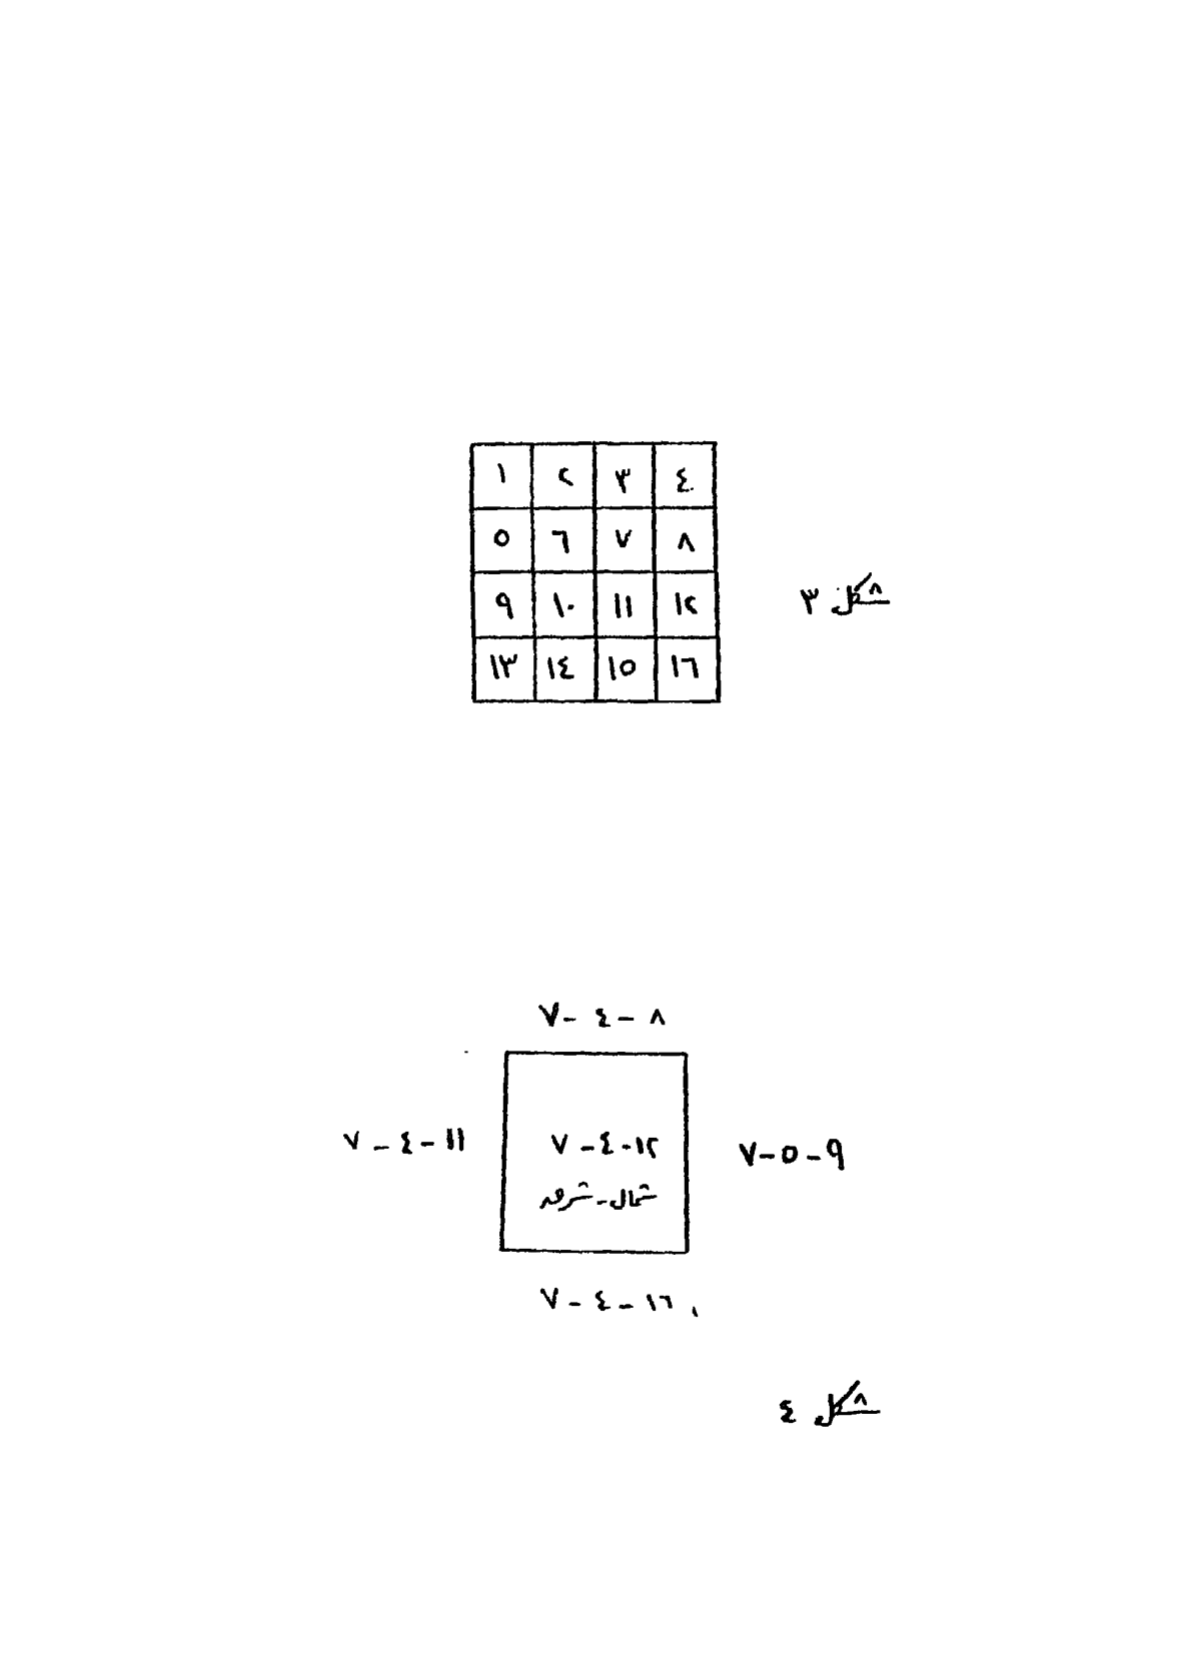 ١ ٢ ٣ ٤
٥ ٦ ٧ ٨
٩ ١٠ ١١ ١٢
١٣ ١٤ ١٥ ١٦
شكل ٣
٧-٤-٨
٧-٤-١١
٧-٤-١٢
٧-٥-٩
شمال-شرق
٧-٤-١٦
شكل ٤